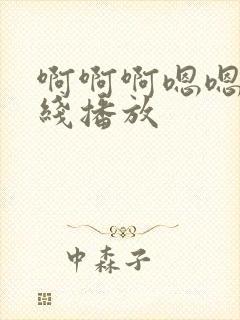 啊啊啊嗯嗯
线播放
中森子